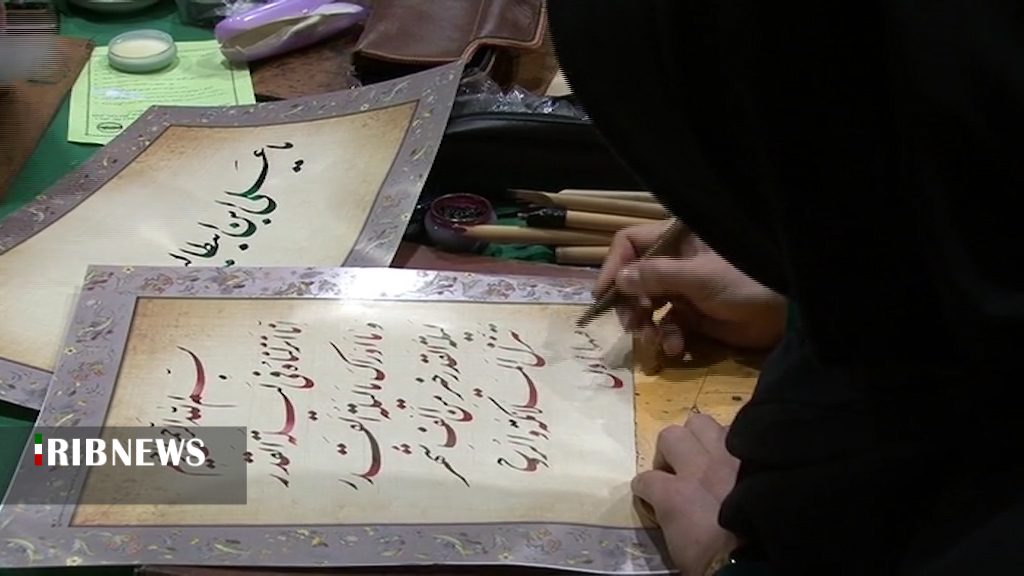 یا علی ابن
بسم الله الرحمن الرحیم
انا انزلناه فی لیلة القدر
و ما ادراک ما لیلة القدر
لیلة القدر خیر من الف شهر
تنزل الملائکة و الروح
IRIBNEWS